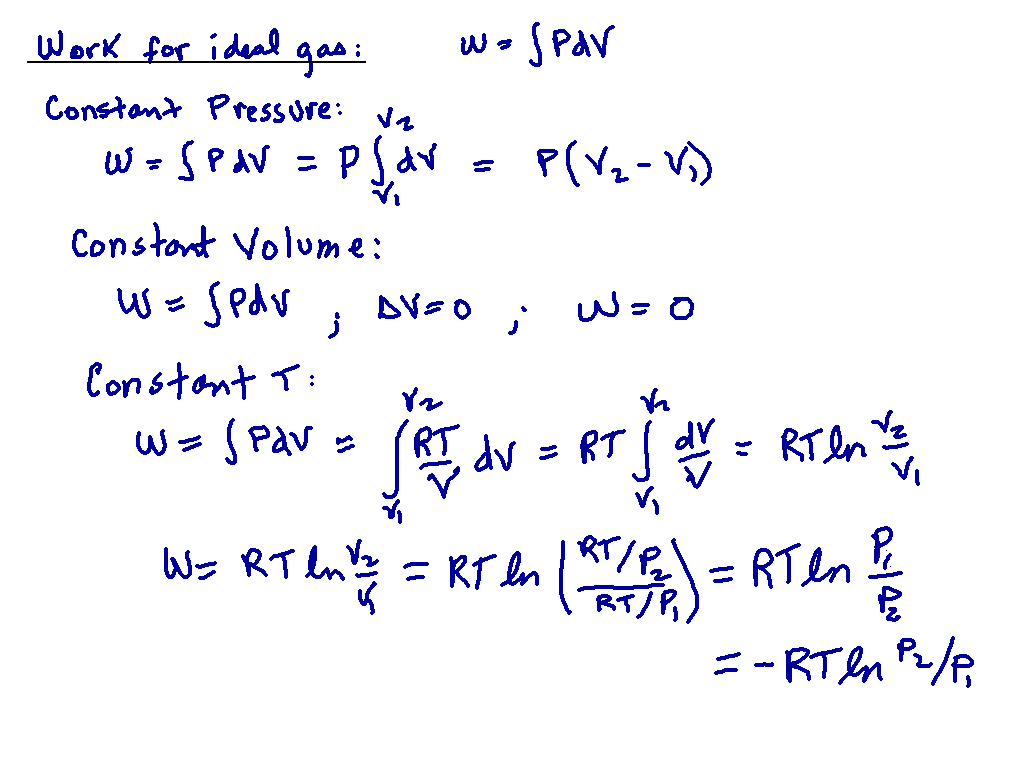 Work for ideal gas: W = ∫PdV
Constant Pressure:
W = ∫PdV = P∫_{V₁}^{V₂} dV = P(V₂ - V₁)
Constant Volume:
W = ∫PdV ; ΔV=0 ; W = 0
Constant T:
W = ∫PdV = ∫_{V₁}^{V₂} RT/V dV = RT ∫_{V₁}^{V₂} dV/V = RT ln V₂/V₁
W = RT ln V₂/V₁ = RT ln ((RT/P₂)/(RT/P₁)) = RT ln P₁/P₂
= -RT ln P₂/P₁